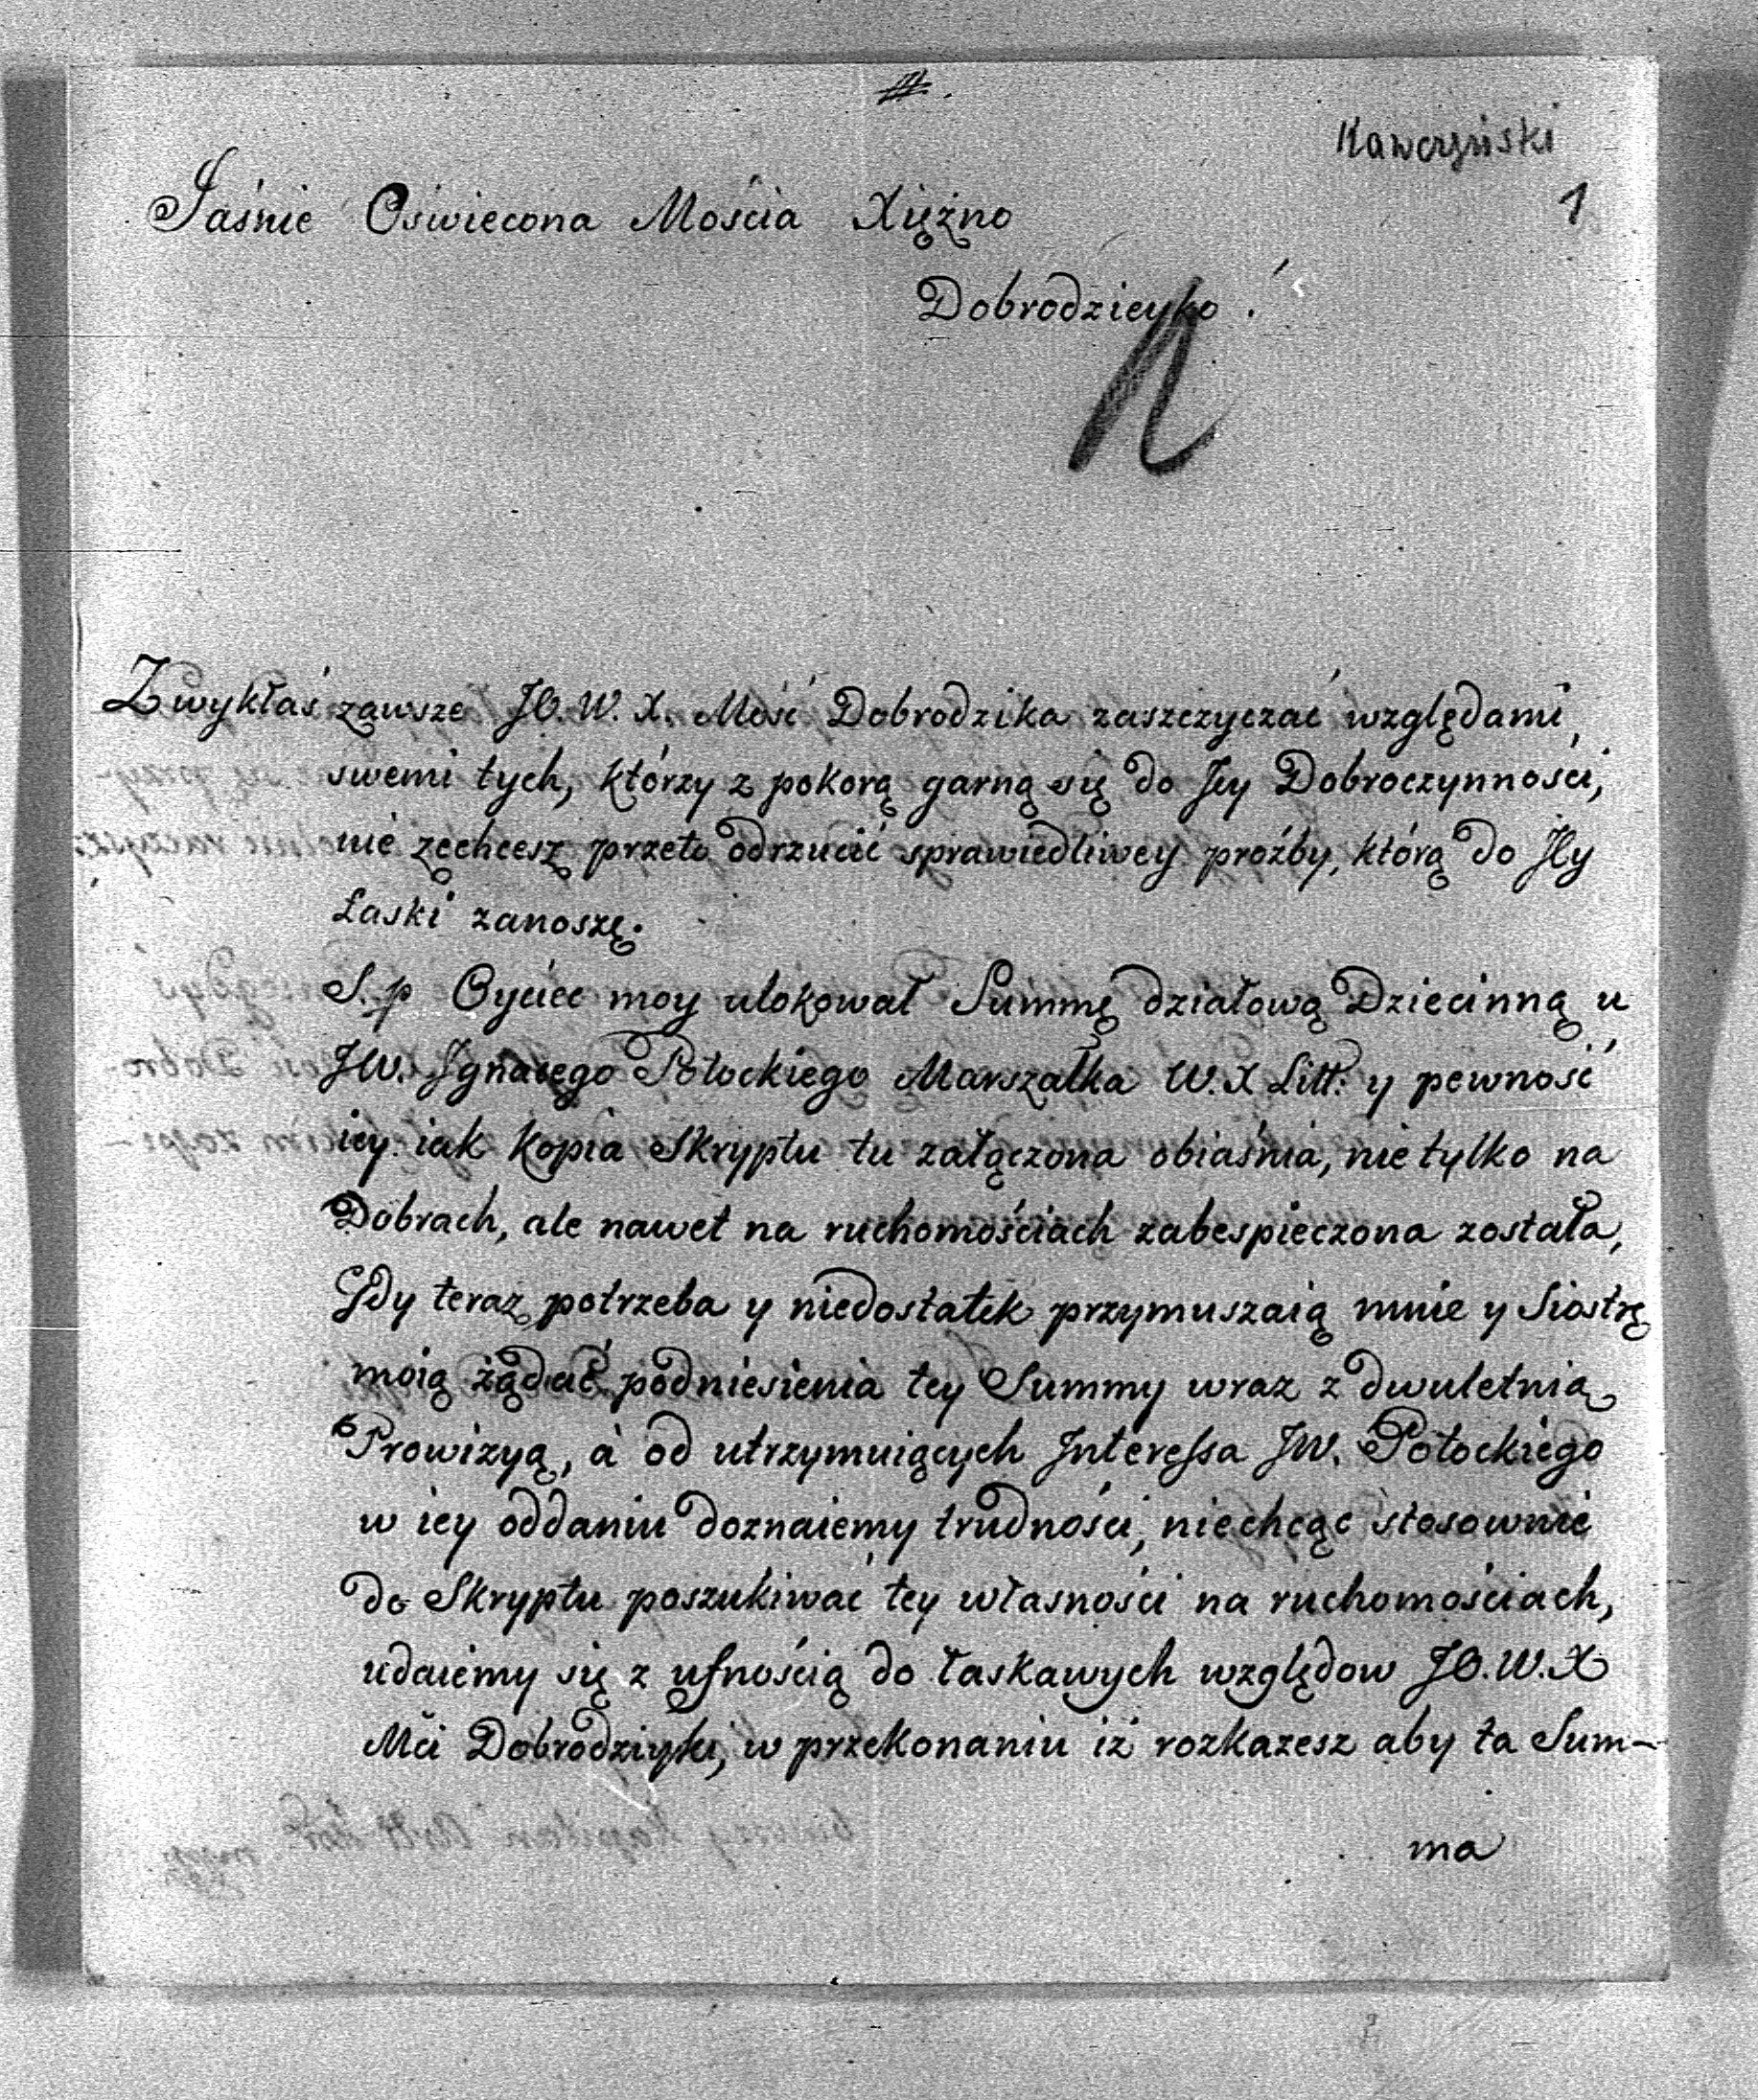 Kawczyński
1
Jaśnie Oswiecona Mościa Xiężno
Dobrodzieyko!
Zwykłaś zawsze JO. W. X. Mość Dobrodzika zaszczyczać względami,
swemi tych, którzy z pokorą garną się do Jey Dobroczynności,
nie zechcesz przeto odrzucić sprawiedliwey proźby, którą do Jey
Łaski zanoszę.
S. p Oyciec moy ulokował Summę działową Dziecinną u
JW. Jgnacego Potockiego Marszałka W. X Litt: y pewność
iey iak kopia Skryptu tu załączona obiaśnia, nie tylko na
Dobrach, ale nawet na ruchomościach zabespieczona została,
Gdy teraz potrzeba y niedostatek przymuszaią mnie y Siostrę
moią żądać podniesienia tey Summy wraz z dwuletnią
Prowizyą, à od utrzymuiących Jnteressa JW. Potockiego
w iey oddaniu doznaiemy trudności, niechcąc stosownie
do Skryptu poszukiwać tey własności na ruchomościach,
udaiemy się z ufnością do łaskawych względow JO. W. X
Mci Dobrodziyki, w przekonaniu iż rozkażesz aby ta Sum-
ma